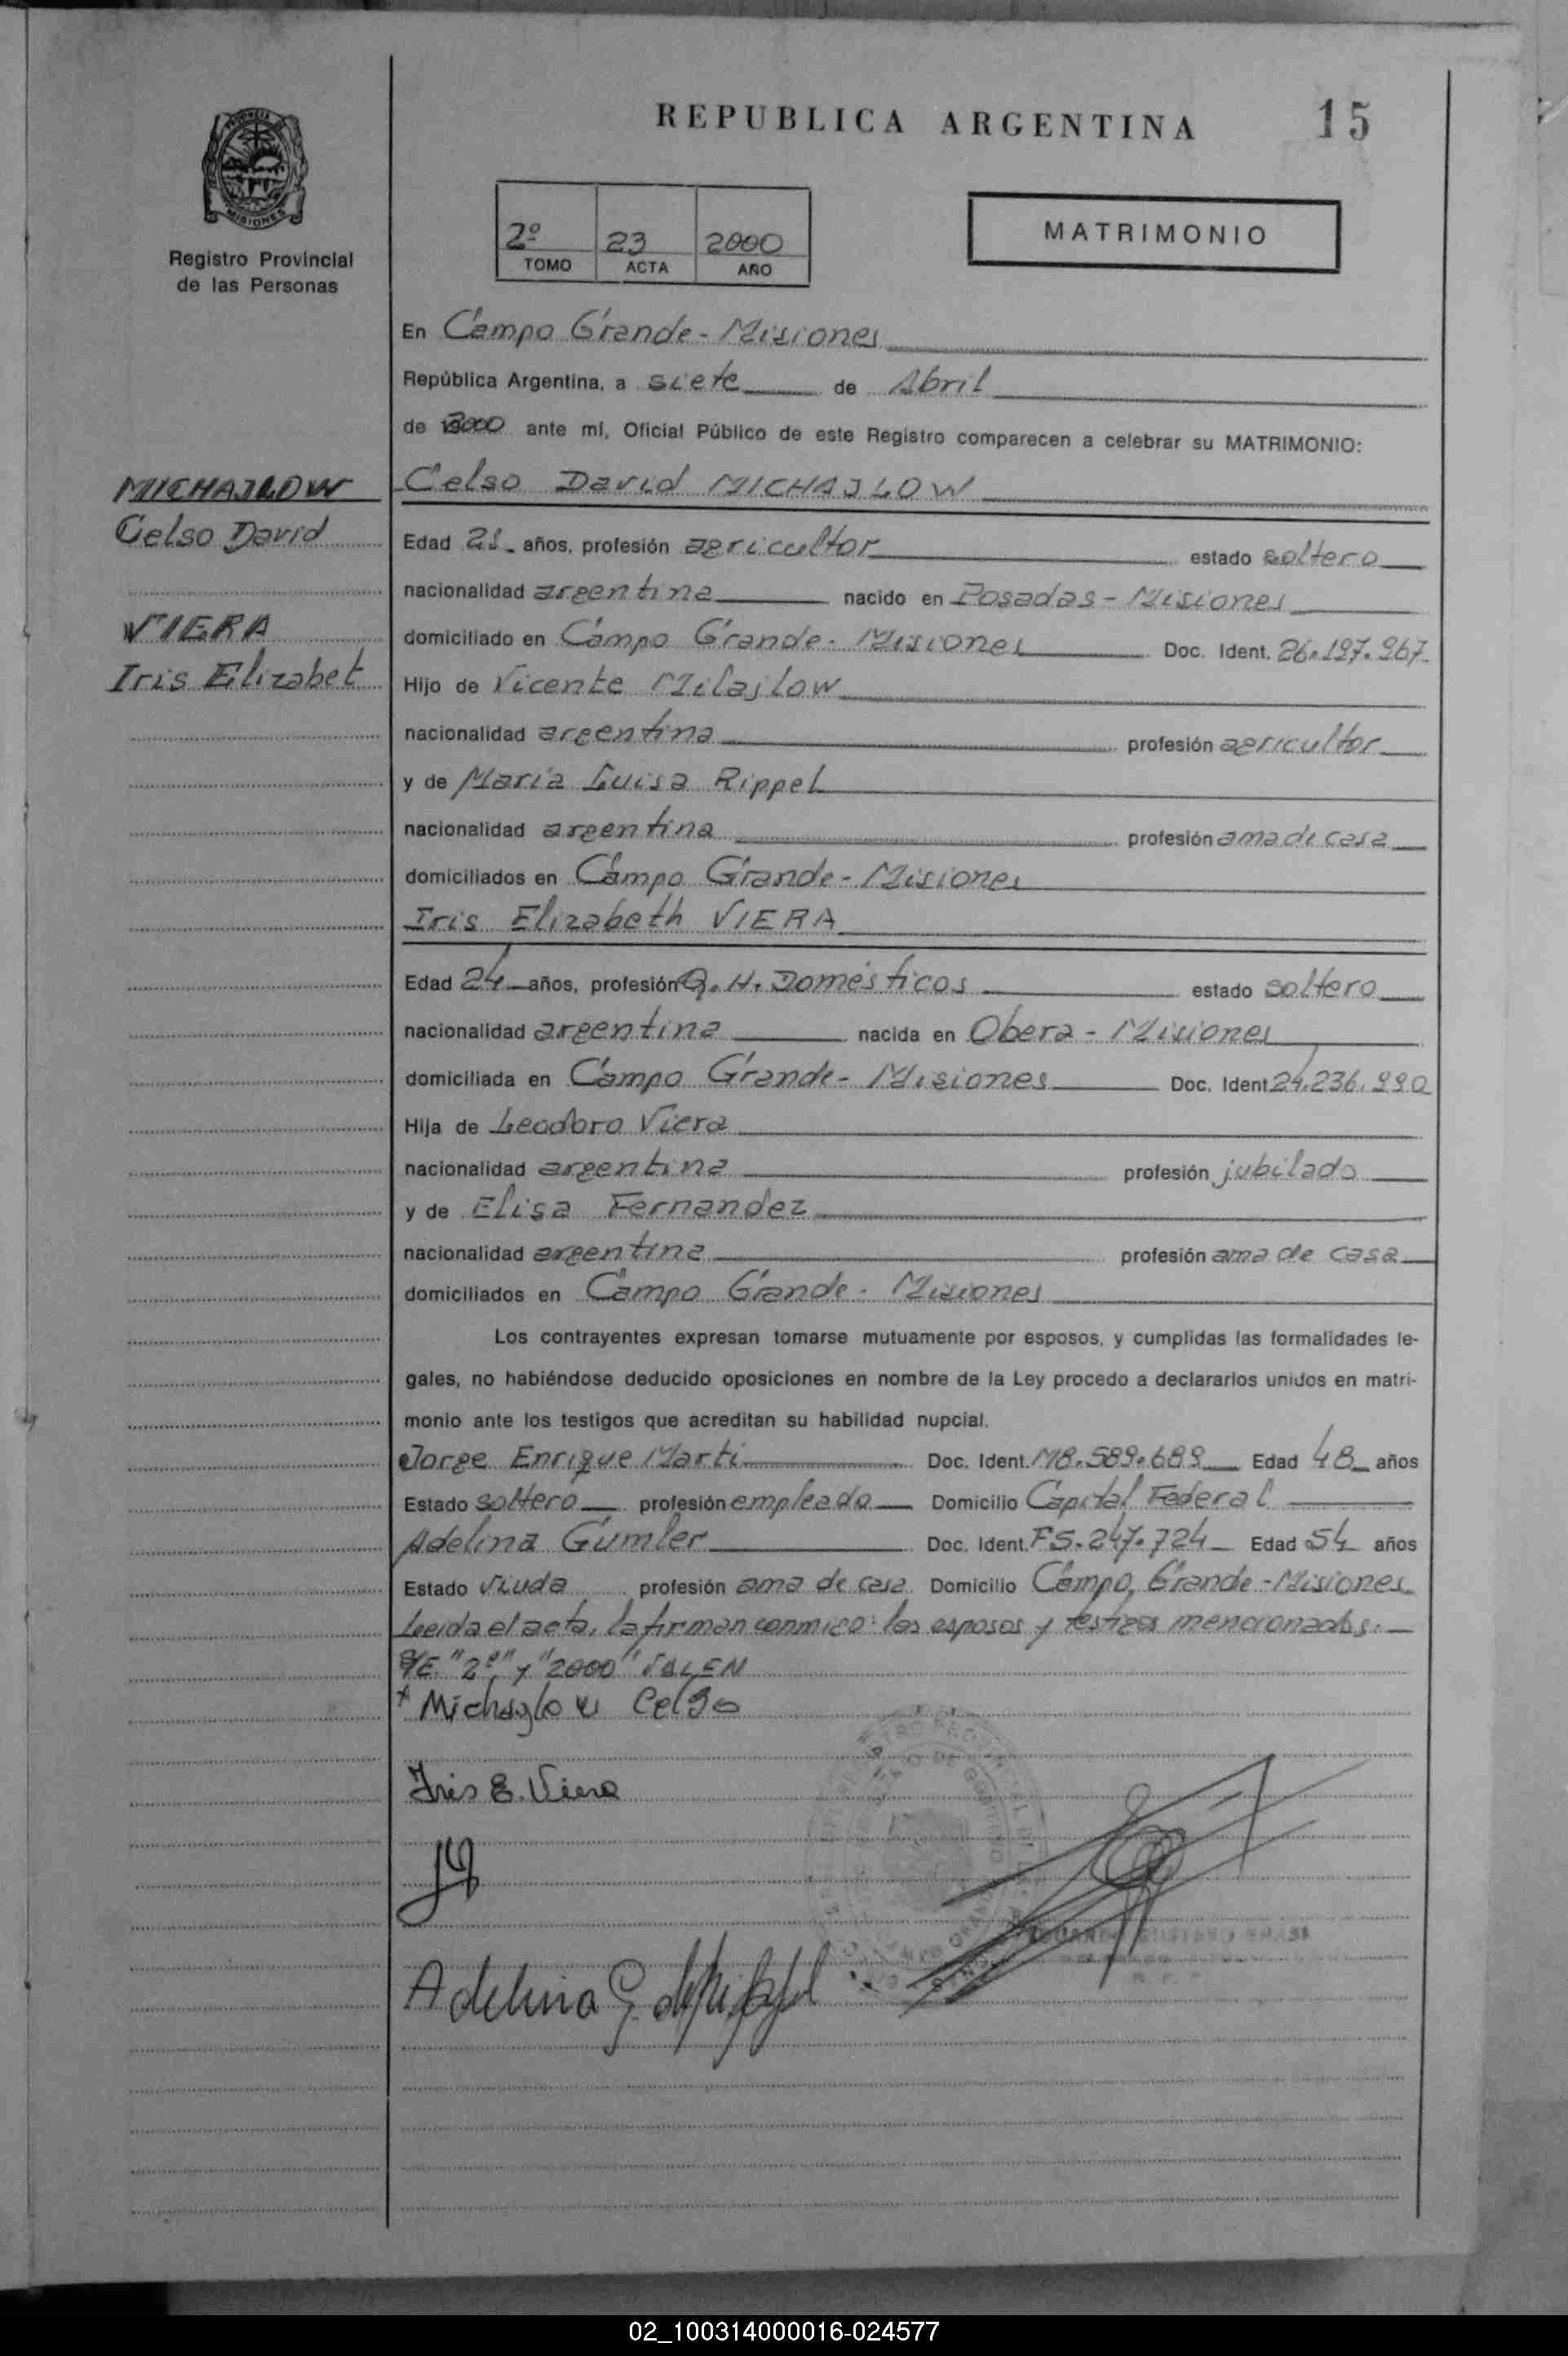 REPUBLICA ARGENTINA
15
PROVINCIA DE
MISIONES
Registro Provincial
de las Personas
2º 23 2000
TOMO ACTA AÑO
MATRIMONIO
En Campo Grande - Misiones
República Argentina, a siete de Abril
de 2000 ante mí, Oficial Público de este Registro comparecen a celebrar su MATRIMONIO:
MICHAJLOW
Celso David
VIERA
Iris Elizabet
Celso David MICHAJLOW
Edad años, profesión agricultor estado soltero
nacionalidad argentina nacido en Posadas - Misiones
domiciliado en Campo Grande - Misiones Doc. Ident. 26.197.967
Hijo de Vicente
nacionalidad argentina profesión agricultor
y de María Luisa Rippel
nacionalidad argentina profesión ama de casa
domiciliados en Campo Grande - Misiones
Iris Elizabeth VIERA
Edad 24 años, profesión Q. H. Domésticos estado soltera
nacionalidad argentina nacida en Obera - Misiones
domiciliada en Campo Grande - Misiones Doc. Ident 24.236.990
Hija de Leodoro Viera
nacionalidad argentina profesión jubilado
y de Elisa Fernandez
nacionalidad argentina profesión ama de casa
domiciliados en Campo Grande - Misiones
Los contrayentes expresan tomarse mutuamente por esposos, y cumplidas las formalidades le-
gales, no habiéndose deducido oposiciones en nombre de la Ley procedo a declararlos unidos en matri-
monio ante los testigos que acreditan su habilidad nupcial.
Jorge Enrique Marti Doc. Ident. M8.589.689 Edad 48 años
Estado soltero profesión empleado Domicilio Capital Federal
Adelina Gumler Doc. Ident. F5.247.724 Edad 54 años
Estado viuda profesión ama de casa Domicilio Campo Grande - Misiones
Leída el acta, la firman conmigo: los esposos y testigos mencionados.
S/E "2º" y "2000" VALEN
Michajlow Celso
Iris E. Viera
Adelina G.
02_100314000016-024577